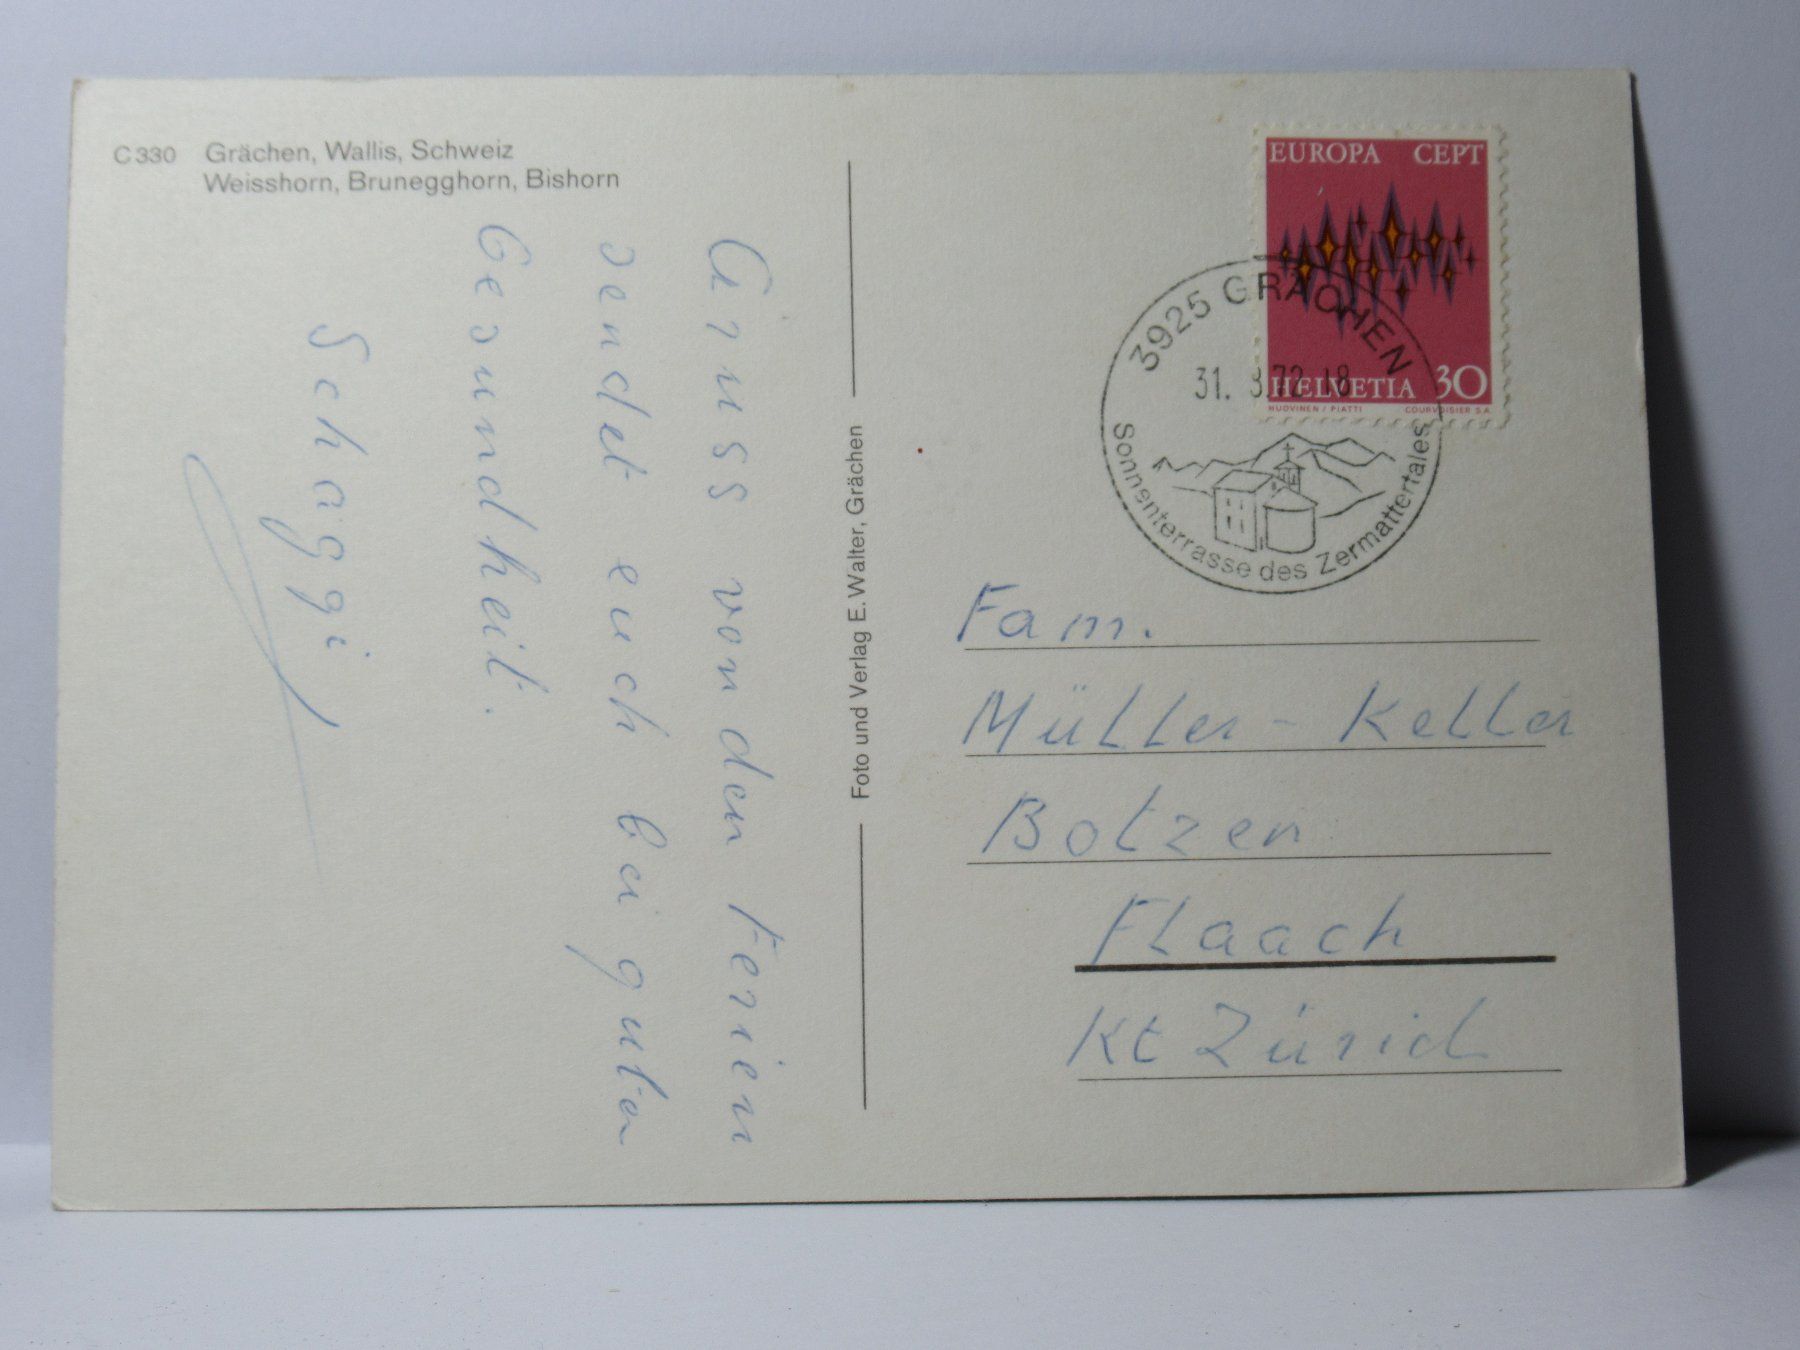 C 330 Grächen, Wallis, Schweiz
Weisshorn, Brunegghorn, Bishorn
Gruss von den Ferien
sendet euch bei guter
Gesundheit.
Schaggi
Foto und Verlag E. Walter, Grächen
EUROPA CEPT
HELVETIA 30
HUOVINEN / PIATTI COURVOISIER S.A.
3925 GRÄCHEN
31. 8.72 18
Sonnenterrasse des Zermattertales
Fam.
Müller - Keller
Botzen
Flaach
Kt Zürich